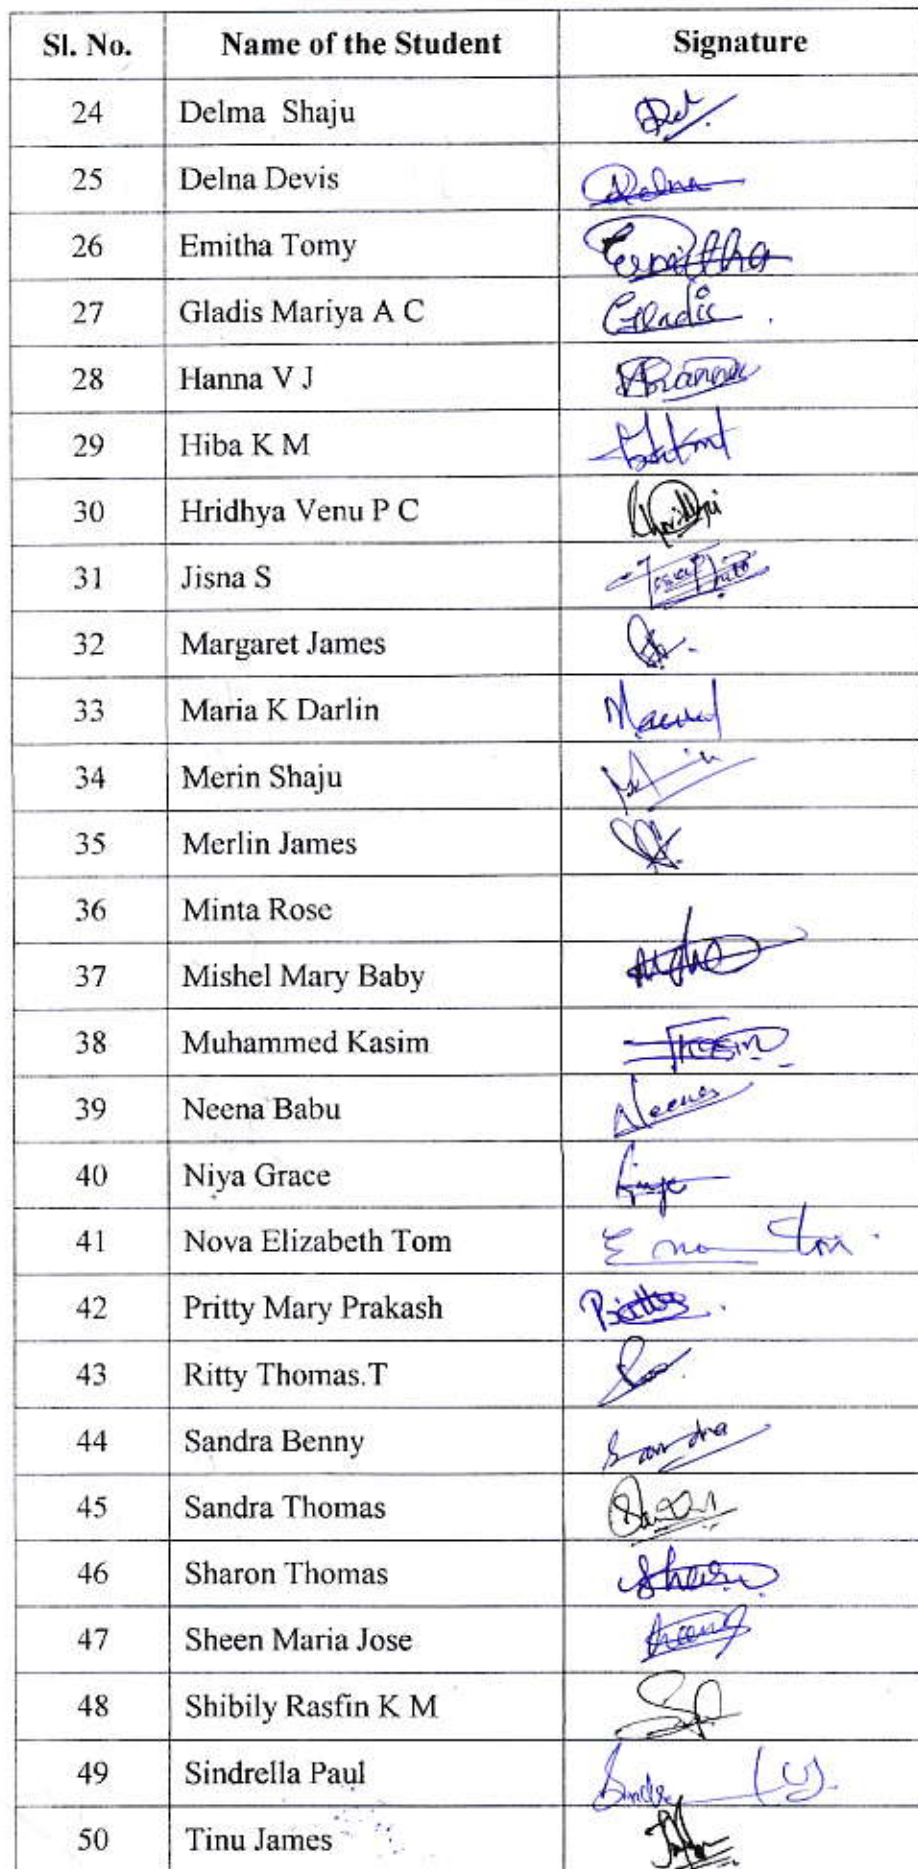 Sl. No. Name of the Student Signature
24 Delma Shaju
25 Delna Devis Delna
26 Emitha Tomy Emitha
27 Gladis Mariya A C Gladis
28 Hanna V J Hanna
29 Hiba K M
30 Hridhya Venu P C
31 Jisna S
32 Margaret James
33 Maria K Darlin
34 Merin Shaju
35 Merlin James
36 Minta Rose
37 Mishel Mary Baby
38 Muhammed Kasim Kasim
39 Neena Babu Neena
40 Niya Grace
41 Nova Elizabeth Tom
42 Pritty Mary Prakash
43 Ritty Thomas.T
44 Sandra Benny Sandra
45 Sandra Thomas
46 Sharon Thomas
47 Sheen Maria Jose
48 Shibily Rasfin K M
49 Sindrella Paul
50 Tinu James